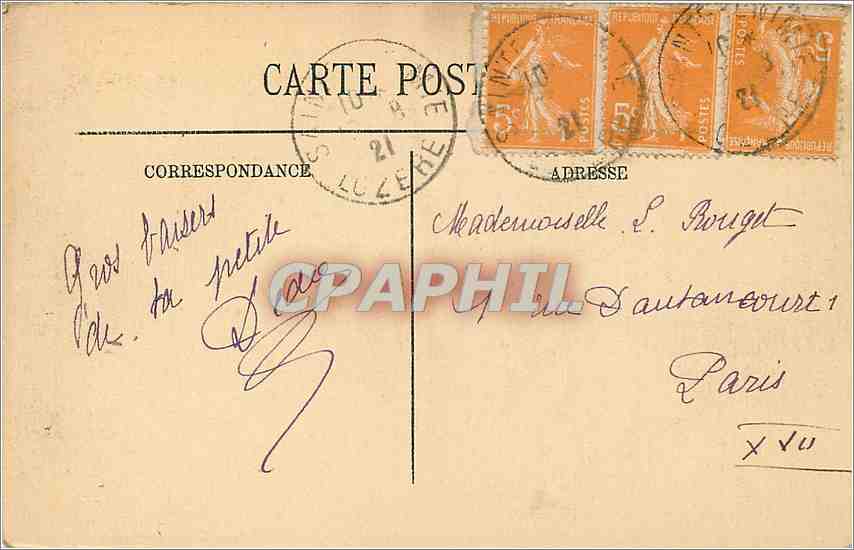 CARTE POST
RÉPUBLIQUE FRANÇAISE
5c
POSTES
RÉPUBLIQUE FRANÇAISE
5c
POSTES
RÉPUBLIQUE FRANÇAISE
5c
POSTES
SAINTE
10
8
21
LOZERE
CORRESPONDANCE
ADRESSE
Gros baisers
de ta petite
Mademoiselle L. Rouget
1 rue Dautancourt 1
Paris
XVII
CPAPHIL